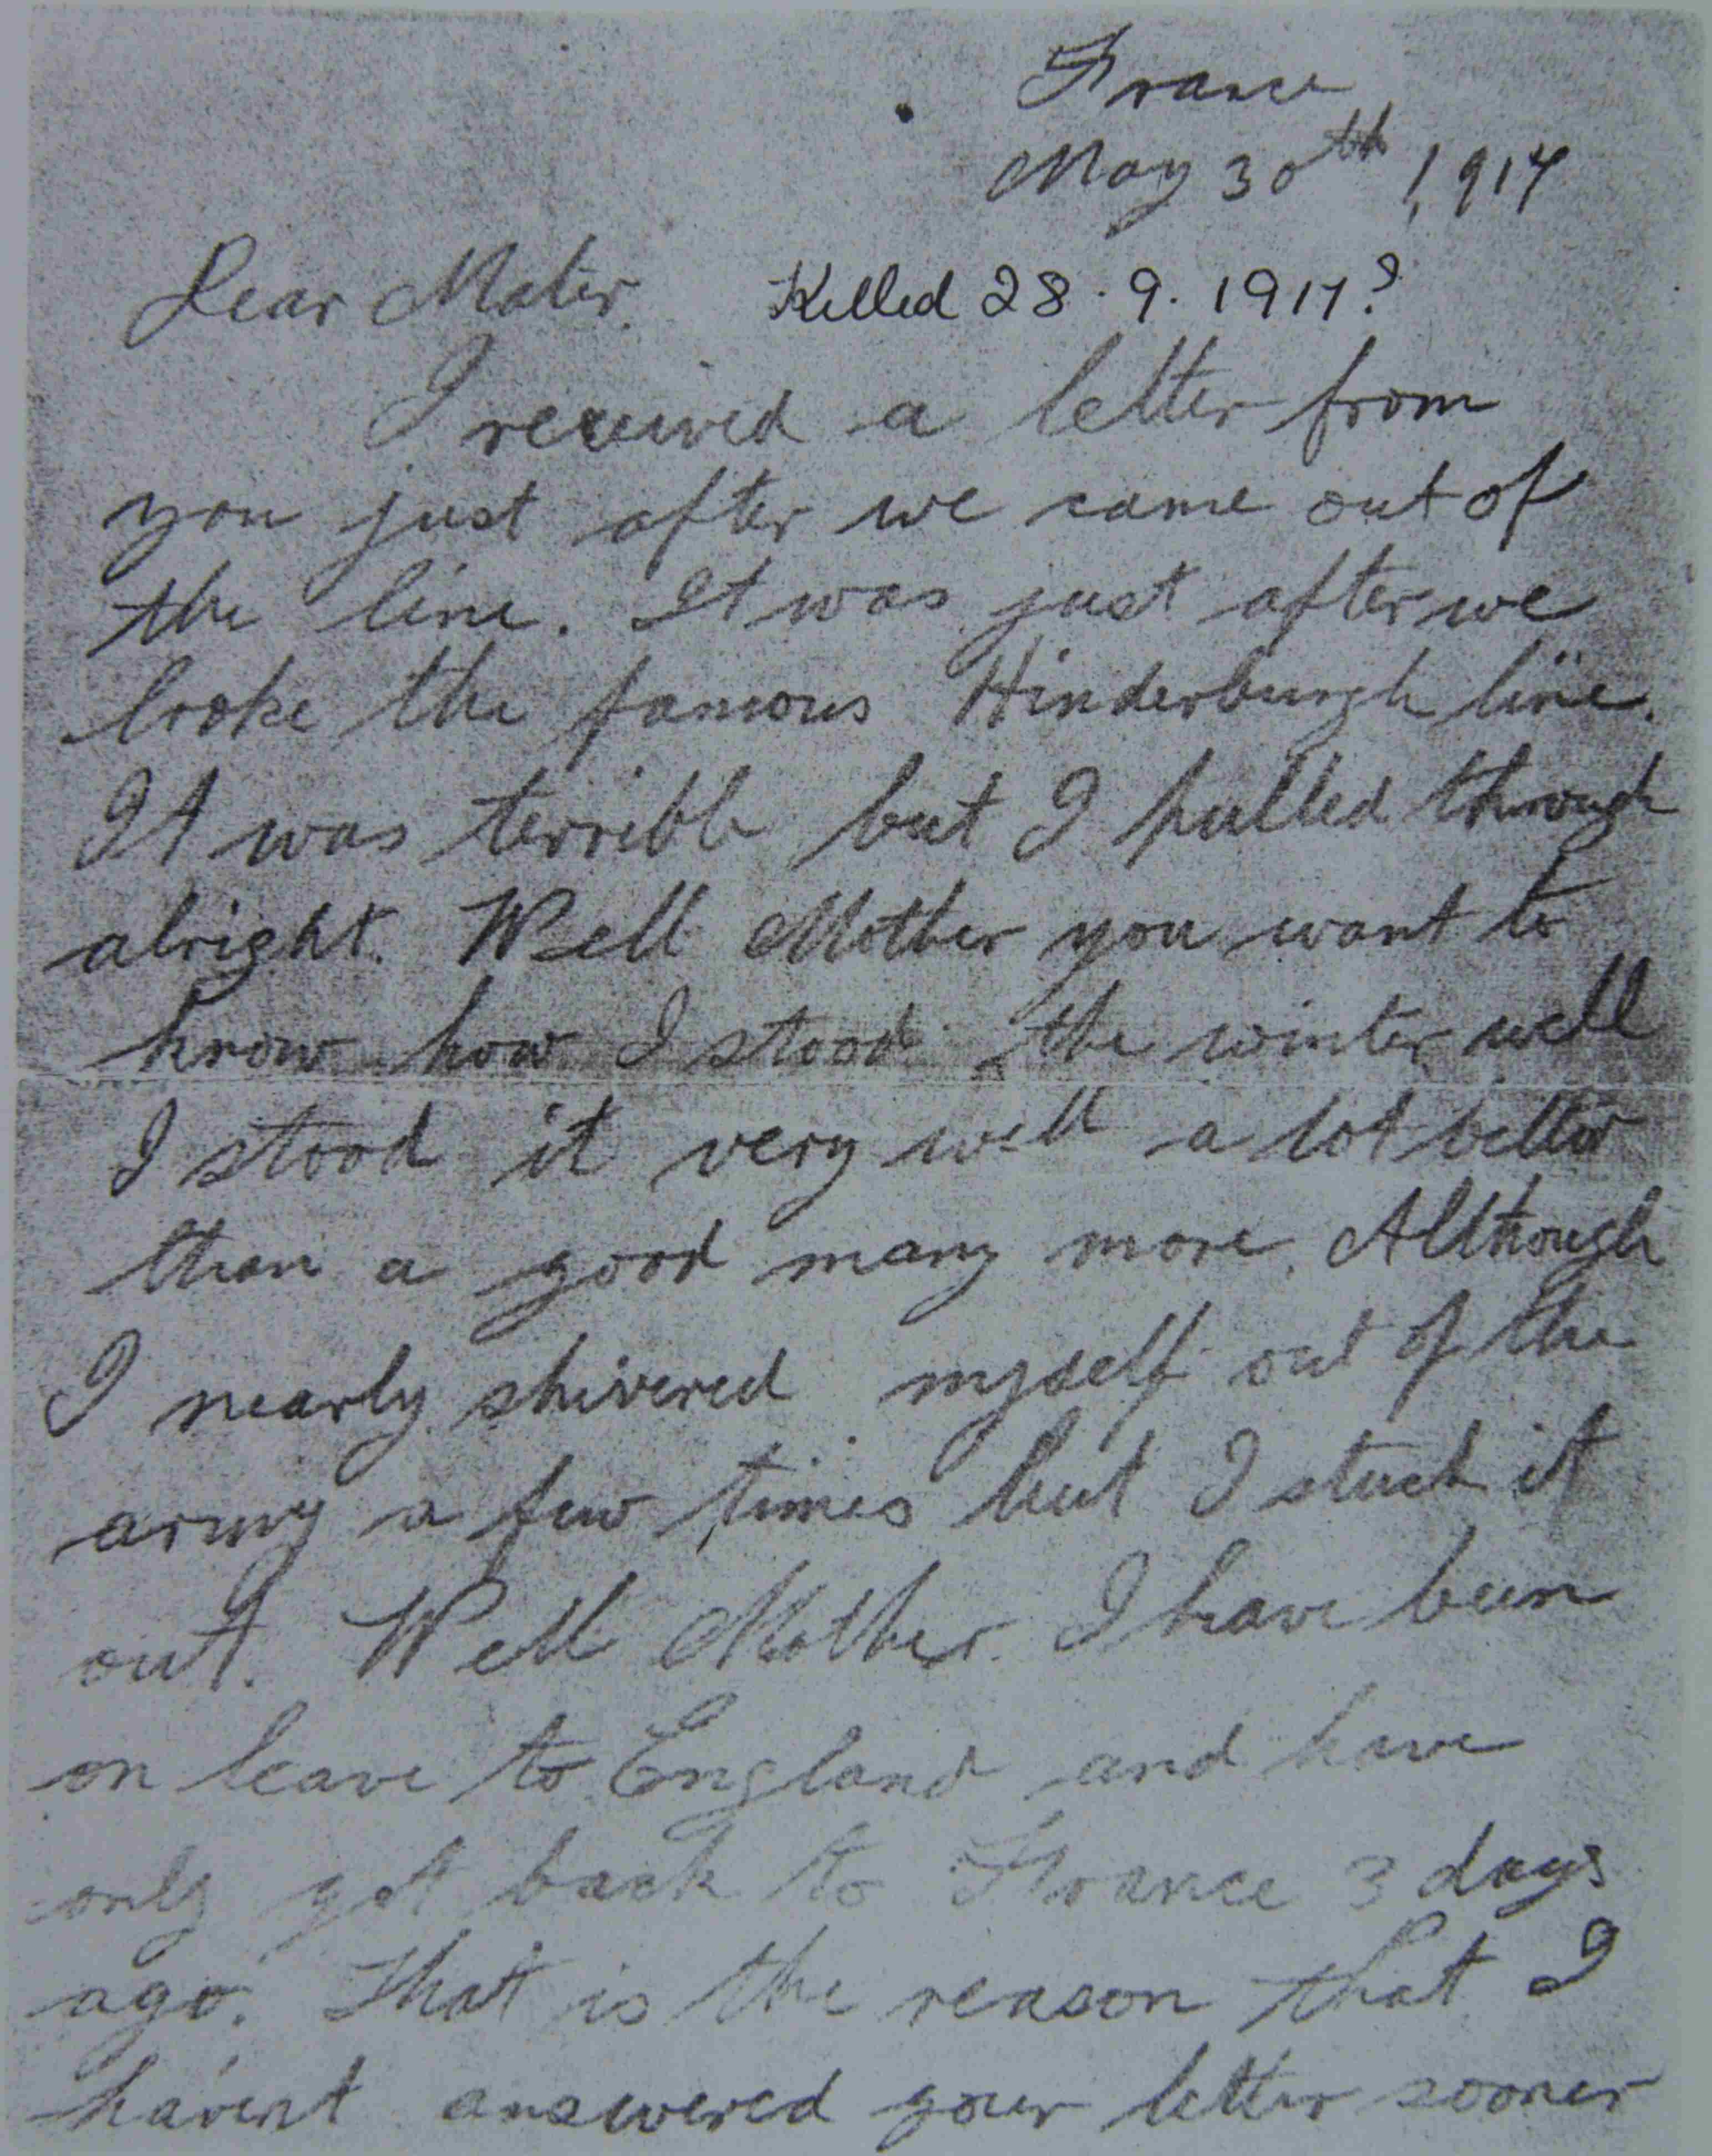 France
May 30th 1917
Dear Mater. Killed 28.9.1917?
I received a letter from
you just after we came out of
the line. It was just after we
broke the famous Hinderburgh line.
It was terrible but I pulled through
alright. Well Mother you want to
know how I stood the winter well
I stood it very well a lot better
than a good many more. Allthough
I nearly shivered myself out of the
army a few times but I stuck it
out. Well Mother I have been
on leave to England and have
only got back to France 3 days
ago. That is the reason that I
havent answered your letter sooner